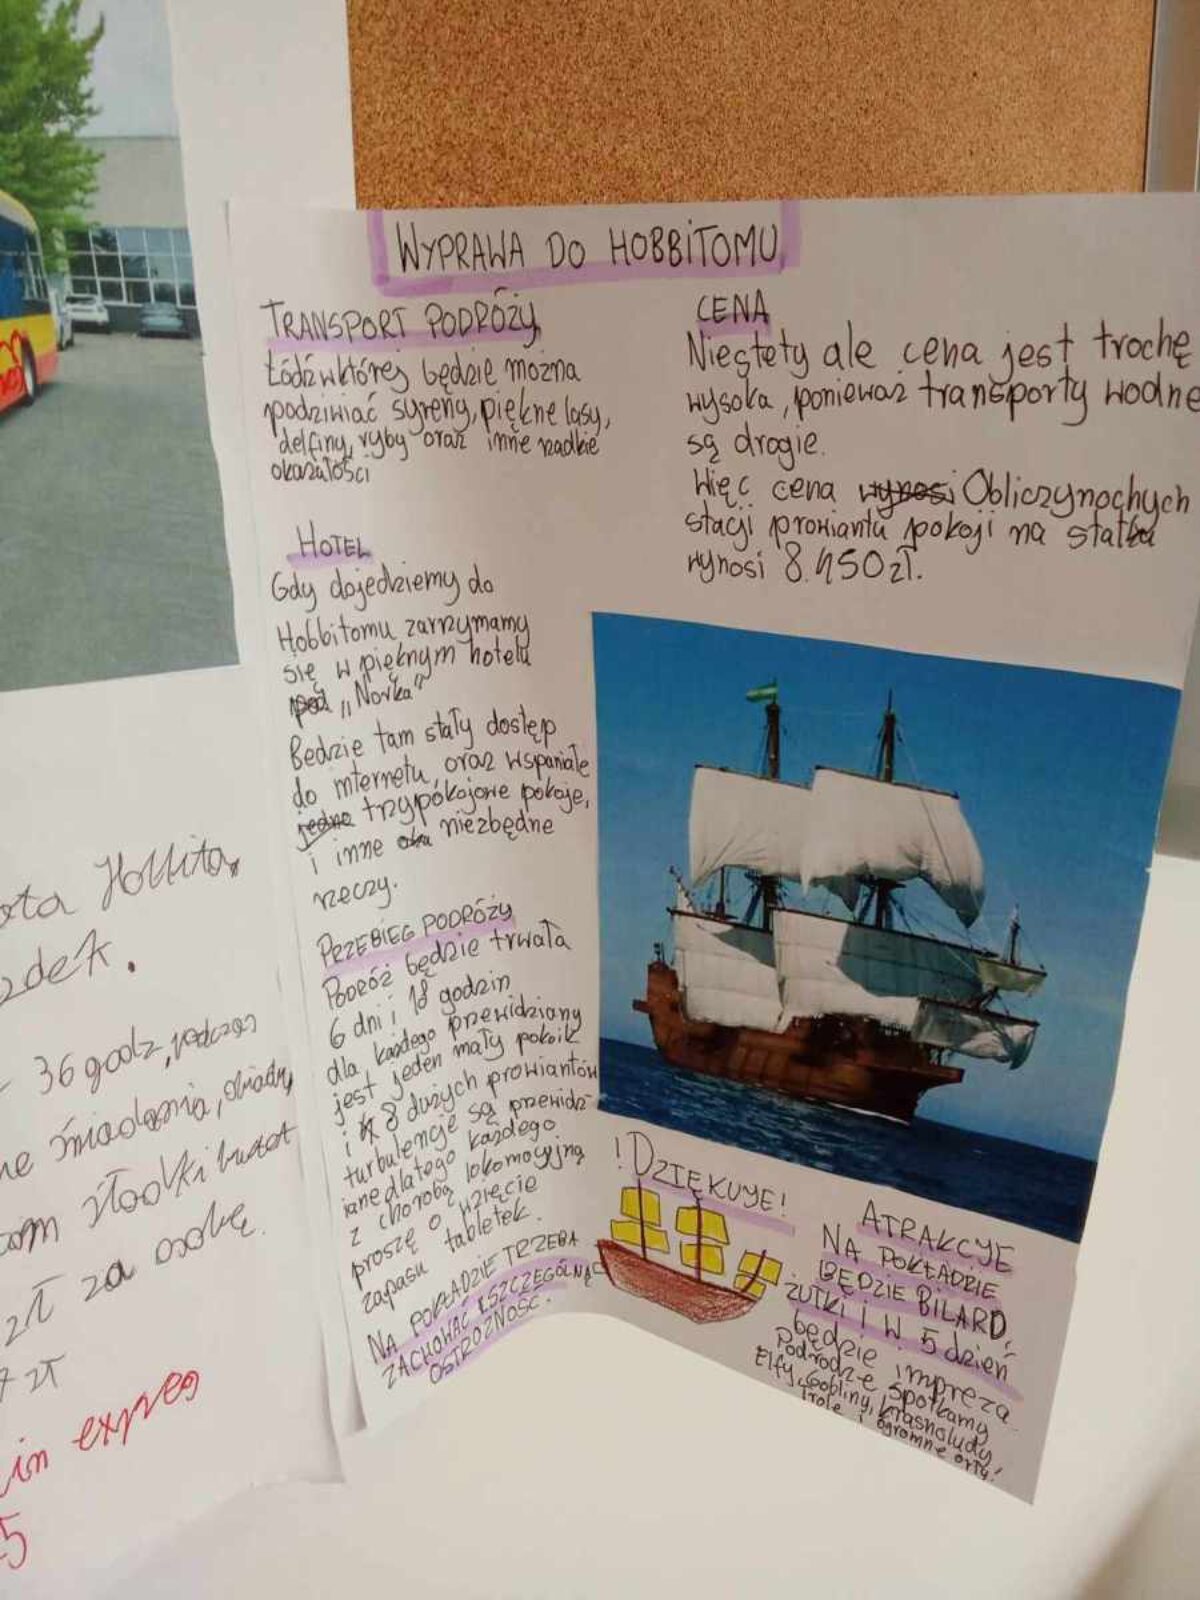 WYPRAWA DO HOBBITOMU
TRANSPORT PODRÓŻY
Łódź w której będzie można
podziwiać syreny, piękne lasy,
delfiny, ryby oraz inne rzadkie
okazałości
HOTEL
Gdy dojedziemy do
Hobbitomu zarzymamy
się w pięknym hotelu
pod „Norka"
Będzie tam stały dostęp
do internetu, oraz wspaniałe
jedno trzypókojowe pokoje,
i inne niezbędne
rzeczy.
PRZEBIEG PODRÓŻY
Podróż będzie trwała
6 dni i 18 godzin
dla każdego przewidziany
jest jeden mały pokoik
i 8 dużych prowiantów
turbulencje są przewidz-
iane dlatego każdego
z chorobą lokomocyjną
proszę o wzięcie
zapasu tabletek.
NA POKŁADZIE TRZEBA
ZACHOWAĆ SZCZEGÓLNĄ
OSTROŻNOŚĆ.
CENA
Niestety ale cena jest trochę
wysoka, ponieważ transporty wodne
są drogie.
Więc cena wynosi Obliczynochych
stacji prowiantu pokoji na statku
wynosi 8.450zł.
! DZIĘKUJE!
ATRAKCJE
NA POKŁADZIE
BĘDZIE BILARD,
ŻUTKI I W 5 dzień
będzie impreza
Podrodze spotkamy
Elfy, Gobliny, krasnoludy,
Trole i ogromne orły!
Hobbita
36 godz, podczas
śniadania, obiady,
zł za osobę.
zł
expres
5